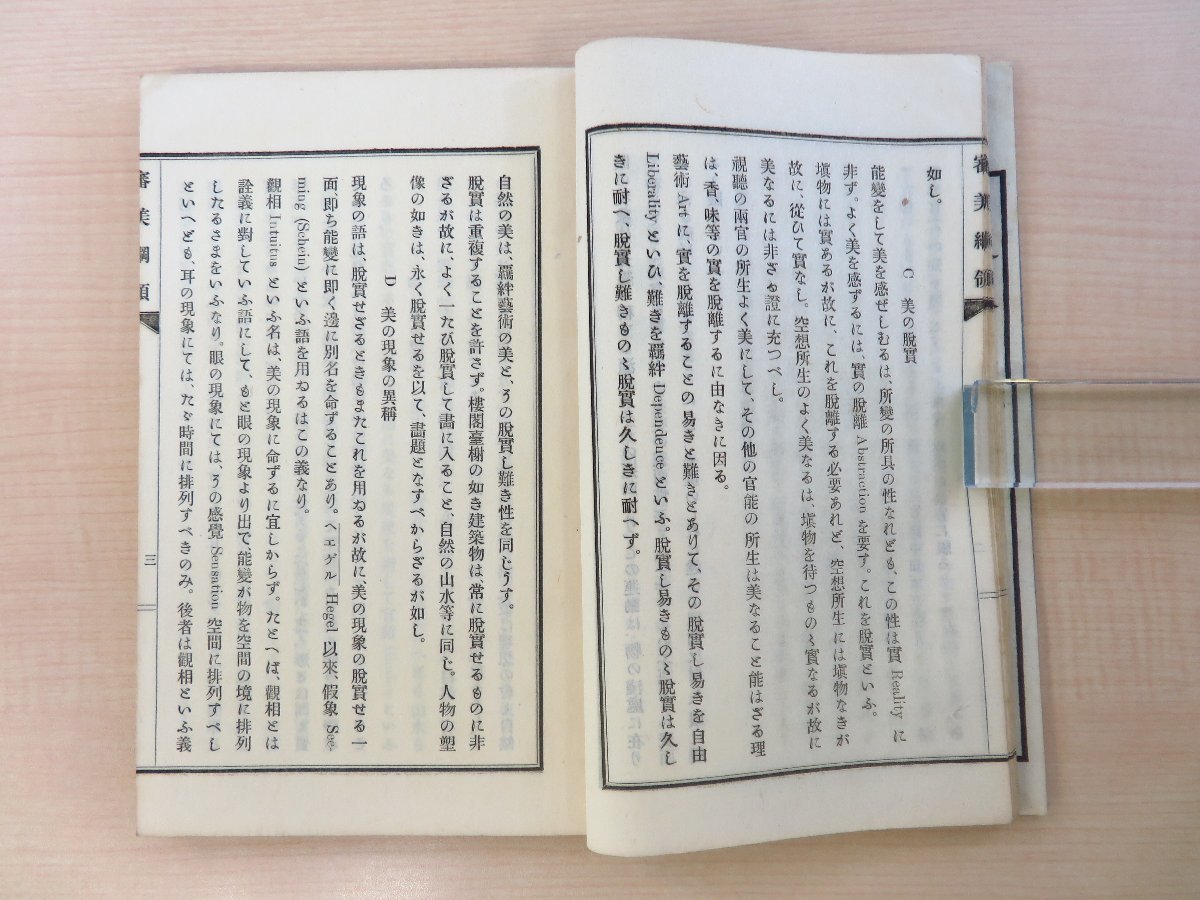 如し。
C 美の脫實
能變をして美を感ぜしむるは、所變の所具の性なれども、この性は實 Reality に
非ず。よく美を感ずるには、實の脫離 Abstraction を要す。これを脫實といふ。
塡物には實あるが故に、これを脫離する必要あれど、空想所生には塡物なきが
故に、從ひて實なし。空想所生のよく美なるは、塡物を待つものゝ實なるが故に
美なるには非ざる證に充つべし。
視聽の兩官の所生よく美にして、その他の官能の所生は美なること能はざる理
は、香、味等の實を脫離するに由なきに因る。
藝術 Art に、實を脫離することの易きと難きとありて、その脫實し易きを自由
Liberality といひ、難きを羈絆 Dependence といふ。脫實し易きものゝ脫實は久し
きに耐へ、脫實し難きものゝ脫實は久しきに耐へず。
審美綱領
自然の美は、羈絆藝術の美と、その脫實し難き性を同じうす。
脫實は重複することを許さず。樓閣臺榭の如き建築物は、常に脫實せるものに非
ざるが故に、よく一たび脫實して畵に入ること、自然の山水等に同じ。人物の塑
像の如きは、永く脫實せるを以て、畵題となすべからざるが如し。
D 美の現象の異稱
現象の語は、脫實せざるときもまたこれを用ゐるが故に、美の現象の脫實せる一
面、卽ち能變に卽く邊に別名を命ずることあり。ヘエゲル Hegel 以來、假象 See-
ming (Schein) といふ語を用ゐるはこの義なり。
觀相 Intuitus といふ名は、美の現象に命ずるに宜しからず。たとへば、觀相とは
詮義に對していふ語にして、もと眼の現象より出で、能變が物を空間の境に排列
したるさまをいふなり。眼の現象にては、その感覺 Sensation 空間に排列すべし
といへども、耳の現象にては、たゞ時間に排列すべきのみ。後者は觀相といふ義
審美綱領
三